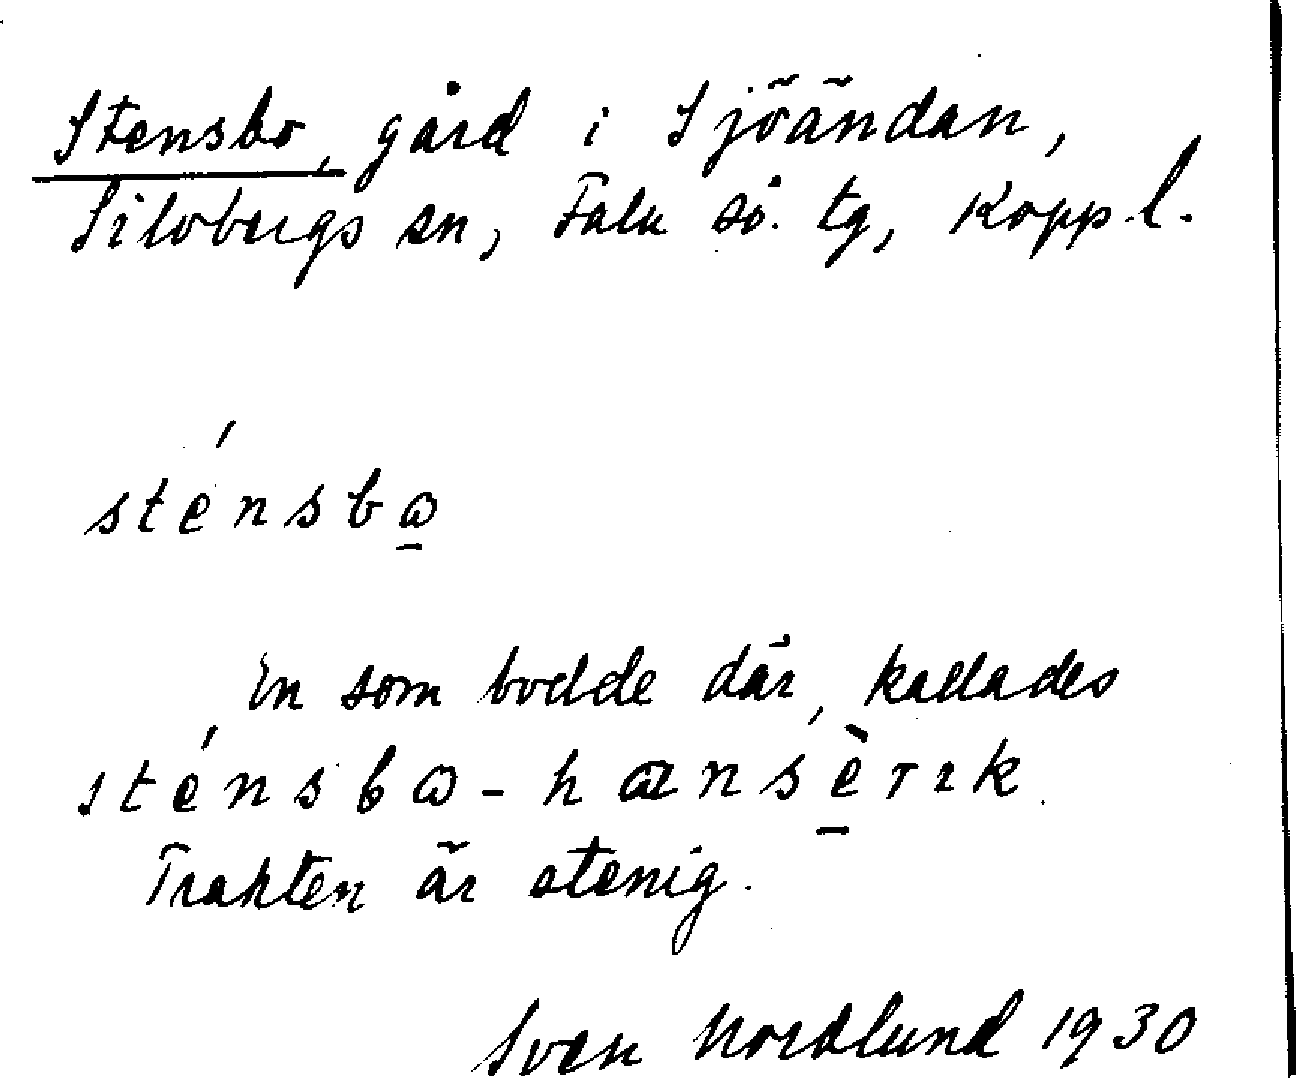 Stensbo, gård i Sjöändan,
Silvbergs sn, Falu sö. tg, Koppl.
sténsbɷ̲
En som bodde där, kallades
sténsbɷ-hansè̲rık.
Trakten är stenig.
Sven Nordlund 1930